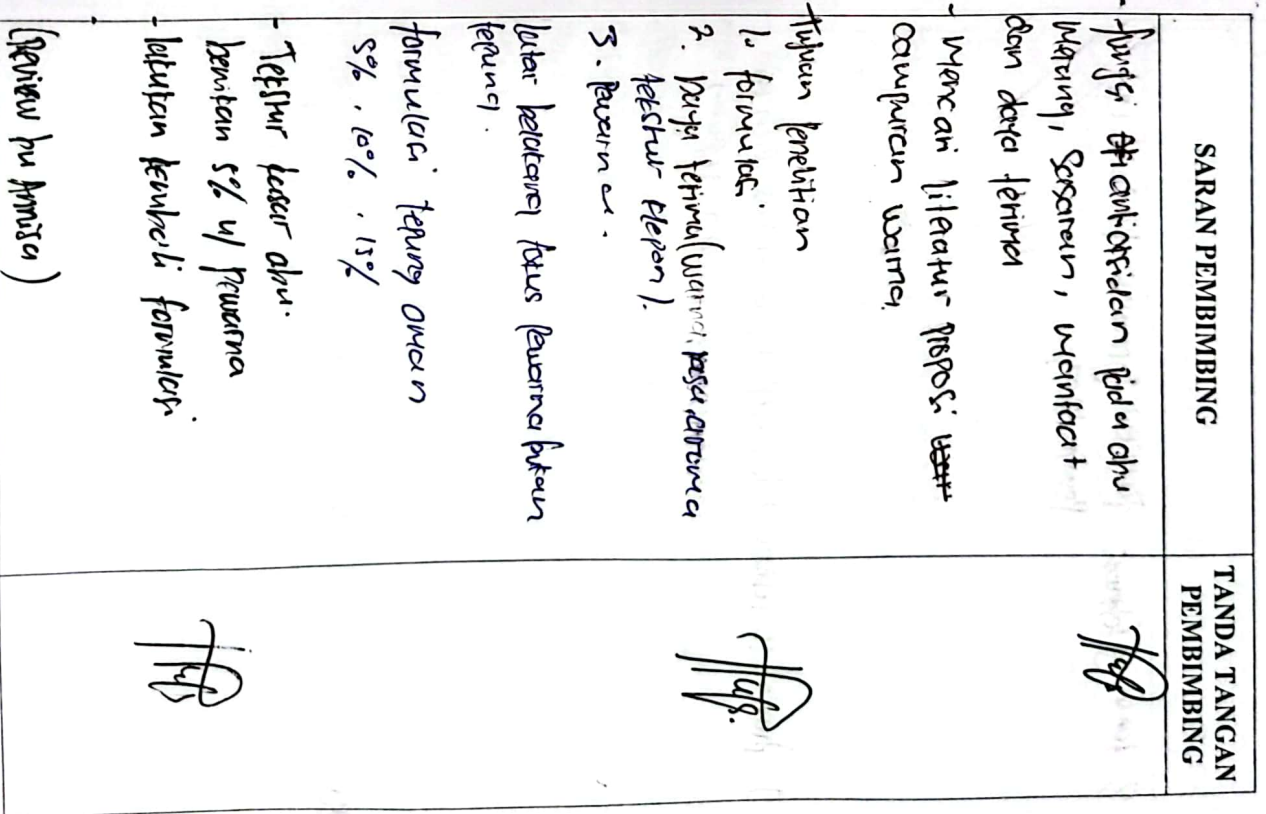 SARAN PEMBIMBING
TANDA TANGAN
PEMBIMBING
- fungsi antioksidan pada abu
merang, Sasaran, manfaat
dan daya terima
- mencari literatur proposi
campuran warna.
Tujuan Penelitian
1. formulasi
2. Daya terima (warna, rasa, aroma
tekstur klepon).
3. Pewarna.
latar belakang fokus Pewarna bukan
tepung.
formulasi tepung oman
5%, 10%, 15%
- Tekstur kasar abu.
berikan 5% u/ pewarna
- lakukan kembali formulasi
(Review bu Annisa)